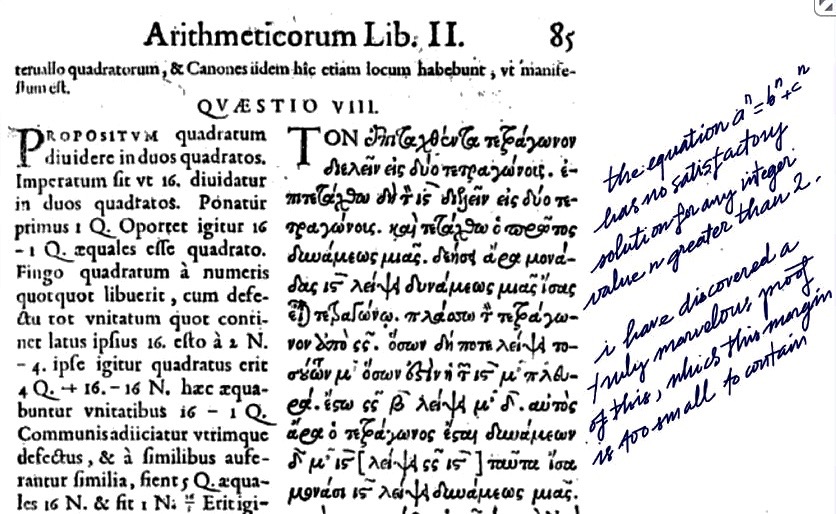 Arithmeticorum Lib. II. 85
teruallo quadratorum, & Canones iidem hîc etiam locum habebunt, vt manife-
stum est.
QVÆSTIO VIII.
PROPOSITVM quadratum
diuidere in duos quadratos.
Imperatum sit vt 16. diuidatur
in duos quadratos. Ponatur
primus 1 Q. Oportet igitur 16
– 1 Q. æquales esse quadrato.
Fingo quadratum à numeris
quotquot libuerit, cum defe-
ctu tot vnitatum quot conti-
net latus ipsius 16. esto à 2 N.
– 4. ipse igitur quadratus erit
4 Q. + 16. – 16 N. hæc æqua-
buntur vnitatibus 16 – 1 Q.
Communis adiiciatur vtrimque
defectus, & à similibus aufe-
rantur similia, fient 5 Q. æqua-
les 16 N. & fit 1 N. Erit igi-
ΤΟΝ ἐπιταχθέντα τετράγωνον
διελεῖν εἰς δύο τετραγώνους. ἐ-
πιτετάχθω δὴ τὸν ιϛ διελεῖν εἰς δύο τε-
τραγώνους. καὶ τετάχθω ὁ πρῶτος
δυνάμεως μιᾶς. δεήσει ἄρα μονά-
δας ιϛ λείψει δυνάμεως μιᾶς ἴσας
εἶναι τετραγώνῳ. πλάσσω τὸν τετράγω-
νον ἀπὸ ςς. ὅσων δή ποτε λείψει το-
σούτων μο ὅσων ἐστὶν ἡ τοῦ ιϛ μο πλευ-
ρά. ἔστω ςς β λείψει μο δ. αὐτὸς
ἄρα ὁ τετράγωνος ἔσται δυνάμεων
δ μο ιϛ [λείψει ςς ιϛ] ταῦτα ἴσα
μονάσι ιϛ λείψει δυνάμεως μιᾶς.
the equation aⁿ=bⁿ+cⁿ
has no satisfactory
solution for any integer
value n greater than 2.
i have discovered a
truly marvelous proof
of this, which this margin
is too small to contain